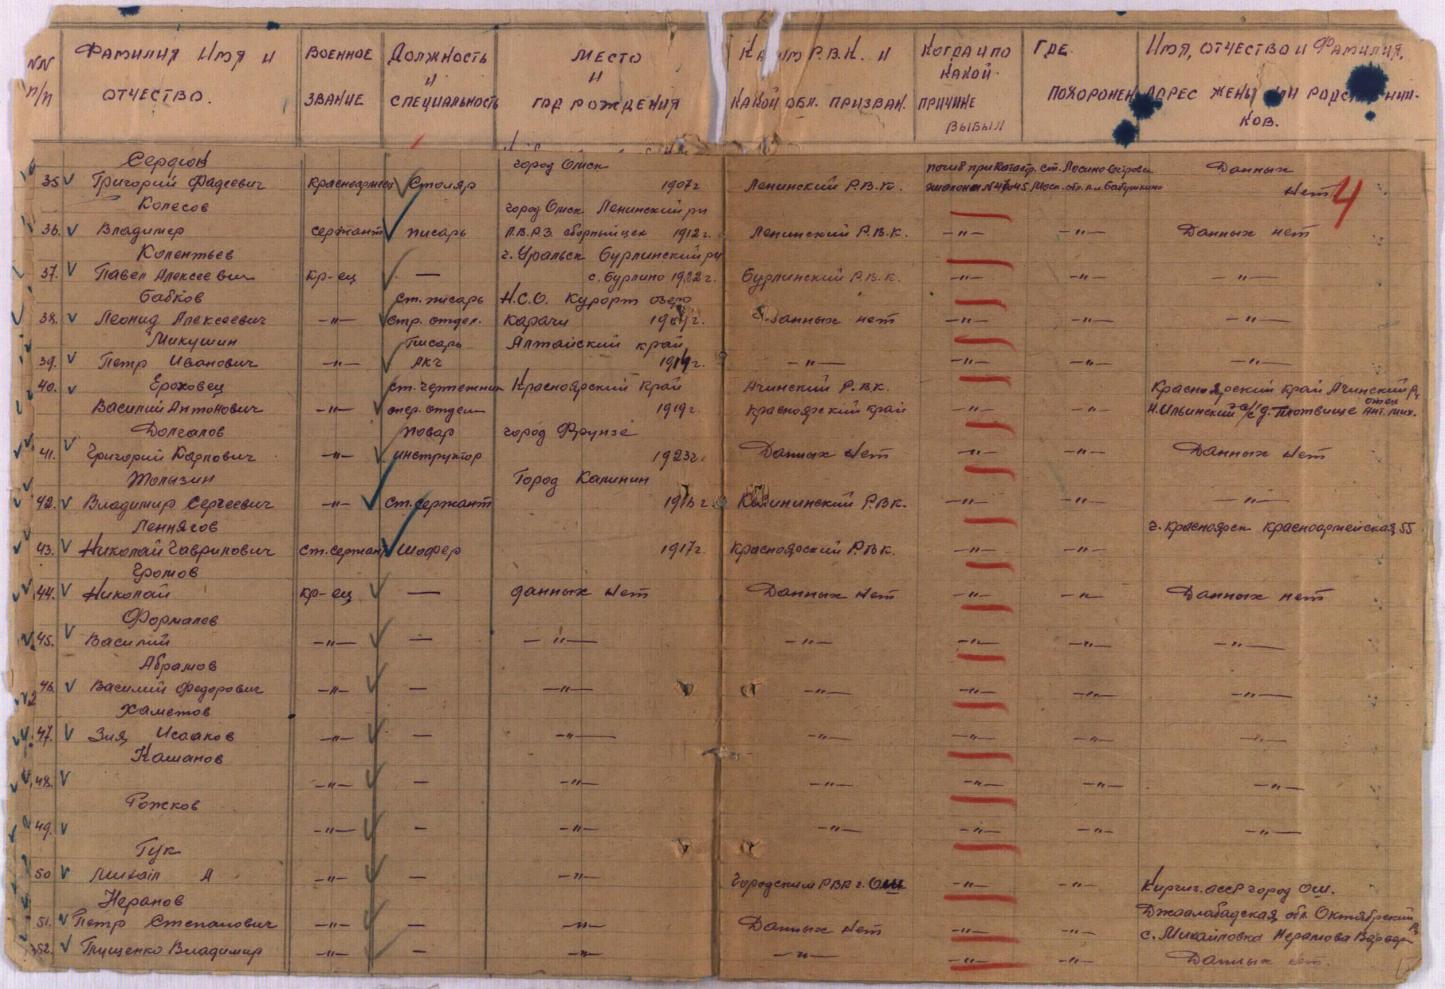 NN п/п ФАМИЛИЯ ИМЯ И ОТЧЕСТВО. ВОЕННОЕ ЗВАНИЕ ДОЛЖНОСТЬ И СПЕЦИАЛЬНОСТЬ МЕСТО И ГОД РОЖДЕНИЯ Р.В.К. И КАКОЙ ОБЛ. ПРИЗВАН. КОГДА И ПО КАКОЙ ПРИЧИНЕ ВЫБЫЛ ГДЕ ПОХОРОНЕН ИМЯ, ОТЧЕСТВО И ФАМИЛИЯ, АДРЕС ЖЕНЫ ИЛИ РОДСТВЕННИКОВ.
4
Сердюк город Омск погиб при катастр. ст. Лосино Данных
35 Григорий Фадеевич Красноармеец Столяр 1907г Ленинский Р.В.К. эшалона Моск. обл. Нет
Колесов город Омск Ленинский рн
36. Владимер сержант писарь П.В.РЗ сборный цех 1912г. Ленинский Р.В.К. -"- -"- Данных нет
Колентьев г. Уральск Бурлинский рн
37. Павел Алексеевич кр-ец — с. Бурлино 1922г. Бурлинский Р.В.К. -"- -"- -"-
Бабков ст. писарь Н.С.О. Курорт озеро
38. Леонид Алексеевич -"- стр. отдел. Карачи Данных нет -"- -"- -"-
Микушин Писарь Алтайский край
39. Петр Иванович -"- АКЧ -"- -"- -"- -"-
40. Ероховец ст. чертежник Красноярский край Ачинский Р.В.К. Красноярский край Ачинский
Василий Антонович -"- опер. отдел 1919г. Красноярский край -"- -"- Н. Ильинский с/с д. Плотвище
Долгалов повар город Фрунзе
41. Григорий Карпович -"- инструктор 1923г. Данных нет -"- -"- Данных нет
Молызин Город Калинин
42. Владимир Сергеевич -"- ст. сержант Калининский Р.В.К. -"- -"- -"-
Леннясов г. Красноярск Красноармейская 55
43. Николай Гаврилович ст. сержан Шофер 1917г. Красноярский Р.В.К. -"- -"-
Громов
44. Николай кр-ец — данных нет Данных нет -"- -"- Данных нет
Формалев
45. Василий -"- — -"- -"- -"- -"- -"-
Абрамов
46. Василий Федорович -"- — -"- -"- -"- -"- -"-
Хаметов
47. Зия Исааков -"- — -"- -"- -"- -"- -"-
Кашанов
48. -"- — -"- -"- -"- -"- -"-
Рожков
49. -"- — -"- -"- -"- -"- -"-
Гук
50 Михаіл А -"- — -"- Городским РВК г. Ош -"- -"- Киргиг. ССР город Ош.
Неранов Джалалабадская обл. Октябрьский
51. Петр Степанович -"- — -"- Данных нет -"- -"- с. Михайловка
52. Тищенко Владимир -"- — -"- -"- -"- -"- Данных нет.